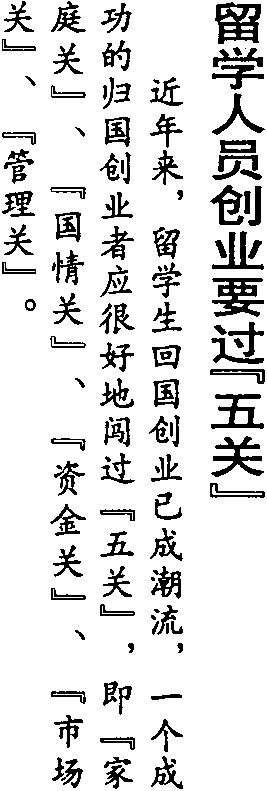 留学人员创业要过『五关』
近年来，留学生回国创业已成潮流，一个成
功的归国创业者应很好地闯过『五关』，即『家
庭关』、『国情关』、『资金关』、『市场
关』、『管理关』。